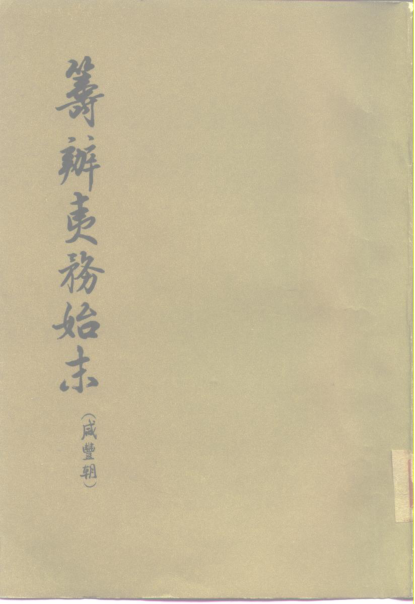 籌辦夷務始末(咸豐朝)